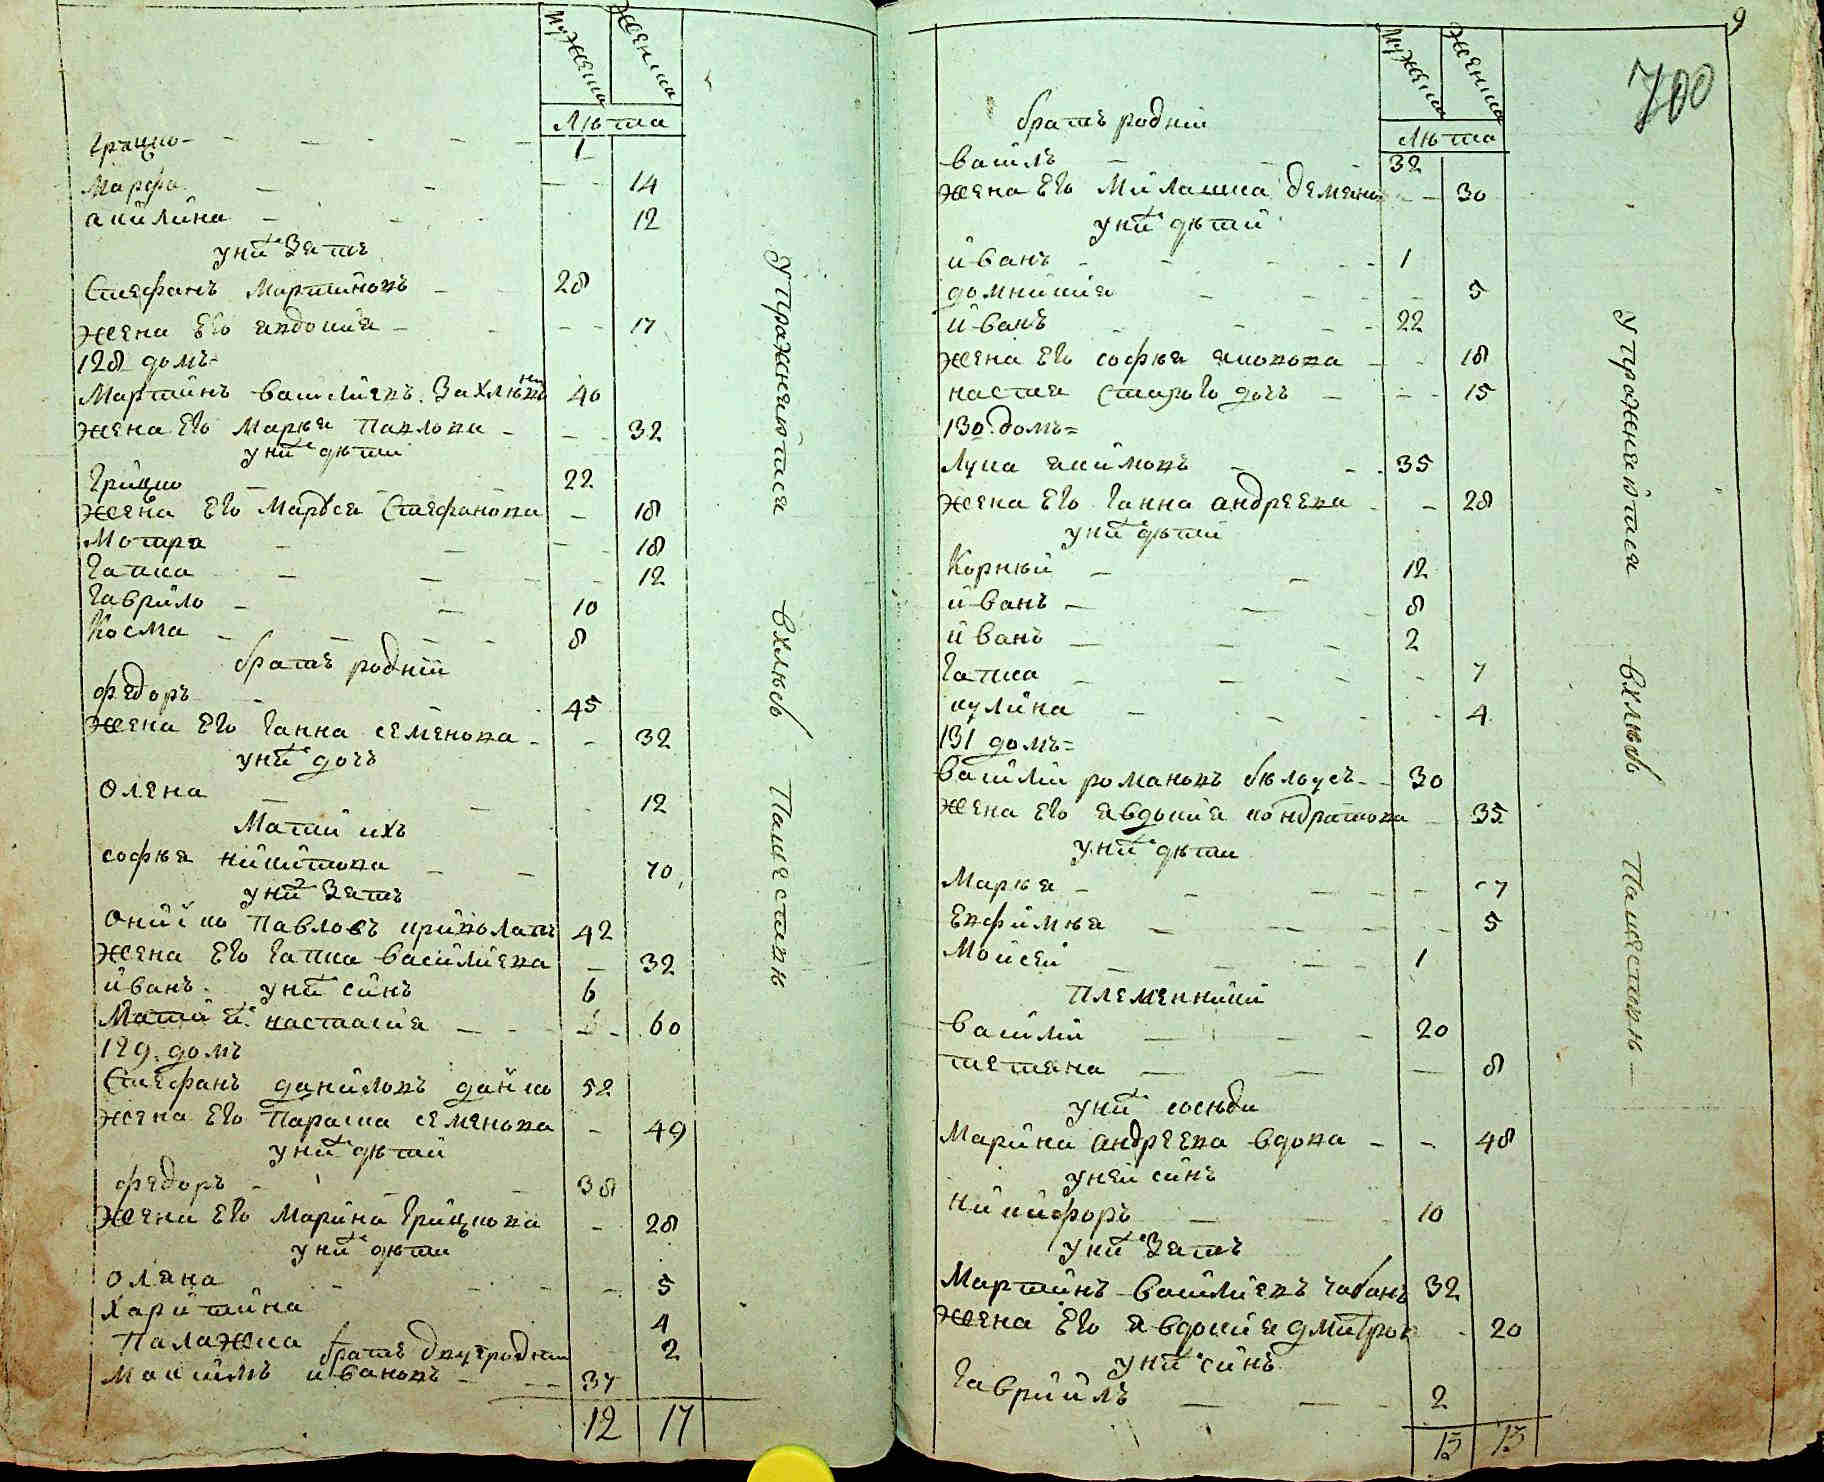 мужеска женска
лѣта
Грацко 1
Марфа 14
акилина 12
у них зять
Стефанъ Мартиновъ 28
жена его авдокия 17
128 домъ
Мартинъ василиевъ
40
жена его Марья Павлова 32
у них дѣти
Грицко 22
жена его Маруся Стефанова 18
Мотря 18
Гапка 12
Гаврило 10
Косма 8
братъ родній
федоръ 45
жена его Ганна семенова 32
у них дочъ
Олена 12
Мати ихъ
софья никитова 70
у них зять
Ониско Павловъ 42
жена его Гапка василиева 32
иванъ у них синъ 6
Мати ея настасия 60
129 домъ
Стефанъ даниловъ 52
жена его Параска семенова 49
у них дѣти
федоръ 38
жена его Марина Грицкова 28
у них дѣти
Олена 5
Харитина 4
Палажка 2
братъ двуродни
Максимъ ивановъ 37
12 17
упражняются в хлѣбопашествѣ
9
700
мужеска женска
лѣта
братъ родній
василь 32
жена его Милашка 30
у них дѣти
иванъ 1
домникия 5
иванъ 22
жена его софья 18
настя старого дочъ 15
130 домъ
Лука акимовъ 35
жена его Ганна андреева 28
у них дѣти
Корнѣй 12
иванъ 8
иванъ 2
Гапка 7
кулина 4
131 домъ
василий романовъ бѣлоусъ 30
жена его авдокия кондратова 35
у них дѣти
Марья 7
Евфимья 5
Мойсей 1
Племенники
василий 20
тетяна 8
у них сосѣди
Марина андреева вдова 48
у ней синъ
никифоръ 10
у них зять
Мартинъ василиевъ чабанъ 32
жена его авдокия дмитров 20
у них синъ
Гавриилъ 2
13 13
упражняются в хлѣбопашествѣ